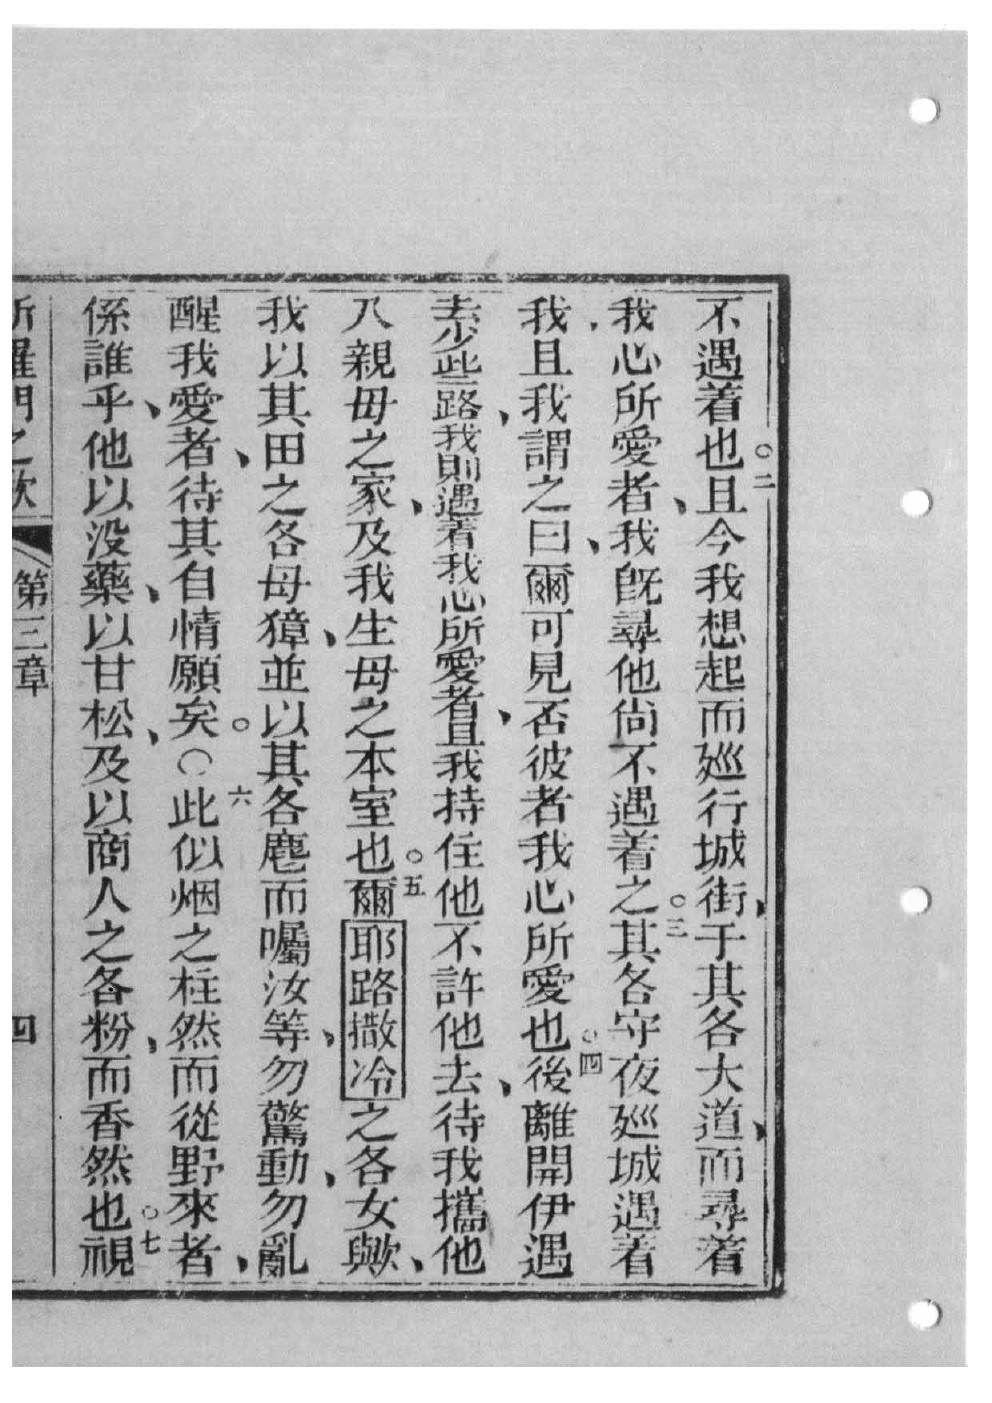 不遇着也。二且今我想起而廵行城街、于其各大道、而尋着
我心所愛者、我既尋他尙不遇着之。三其各守夜廵城遇着
我、且我謂之曰、爾可見否彼者我心所愛也。四後離開伊遇
去少些路、我則遇着我心所愛者、且我持住他不許他去、待我攜他
入親母之家、及我生母之本室也。五爾耶路撒冷之各女歟、
我以其田之各母獐、並以其各麀而囑汝等、勿驚動、勿亂
醒我愛者、待其自情願矣。〇六此似烟之柱然而從野來者、
係誰乎、他以没藥、以甘松、及以商人之各粉、而香然也。七視
所羅門之歌 第三章 四